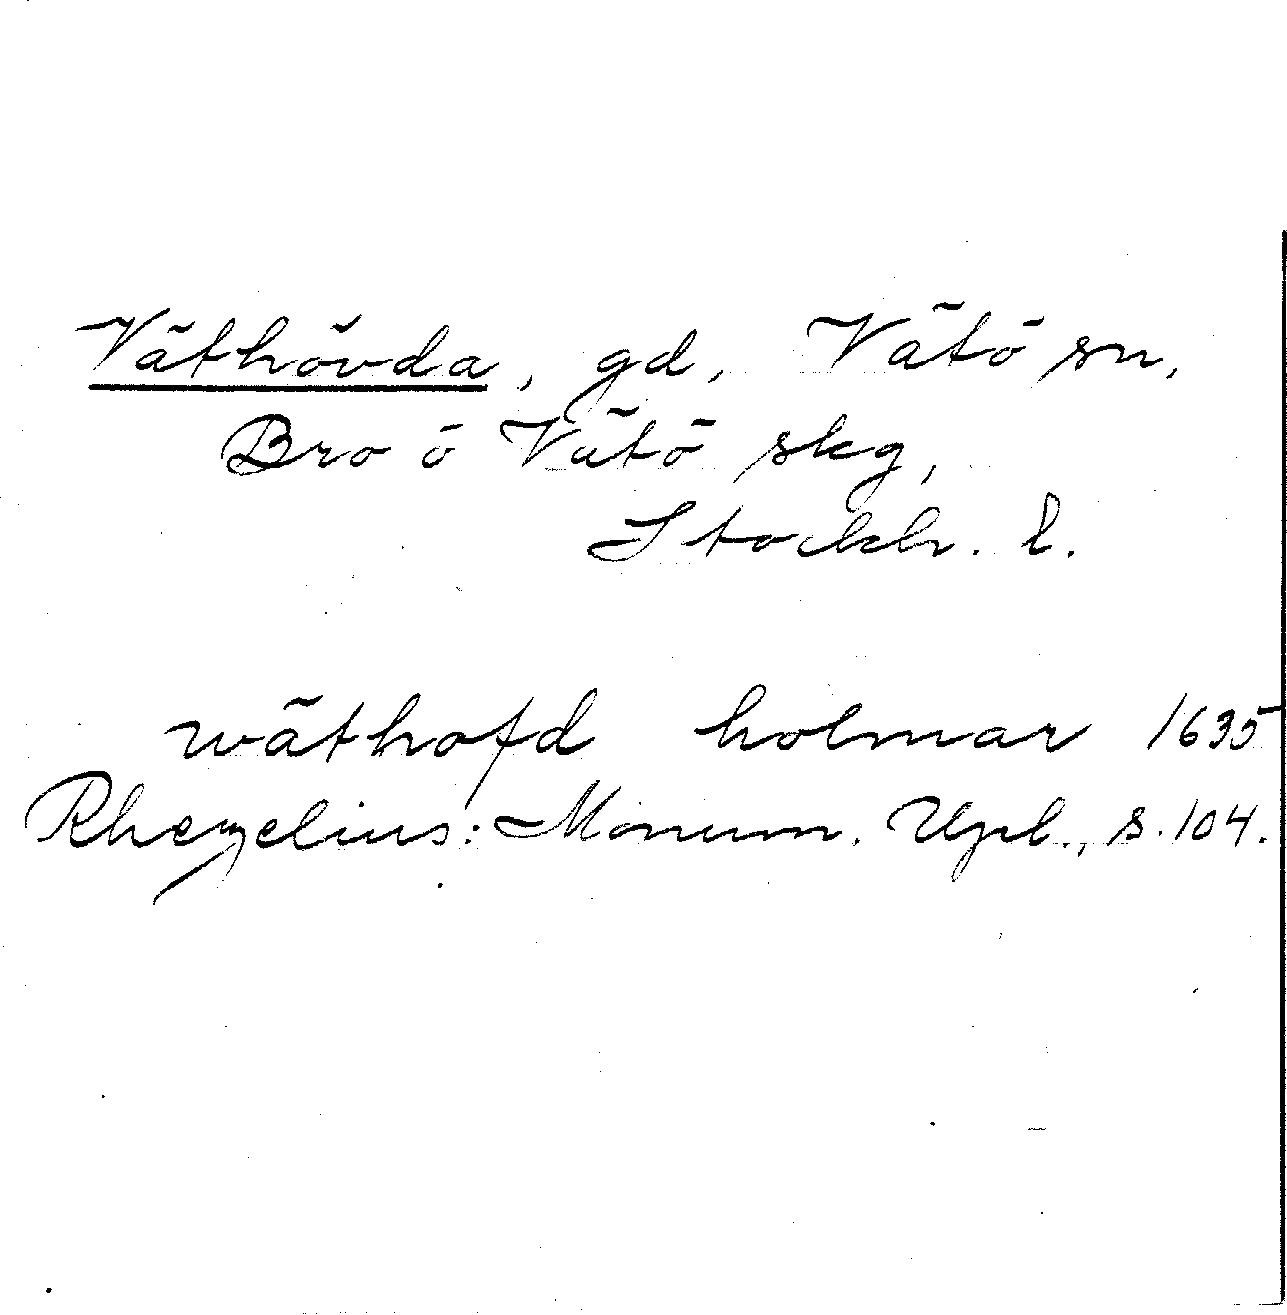 Väthövda, gd, Vätö sn,
Bro o Vätö skg,
Stockh. l.
wäthofd holmar 1635
Rhezelius: Monum. Upl., s. 104.